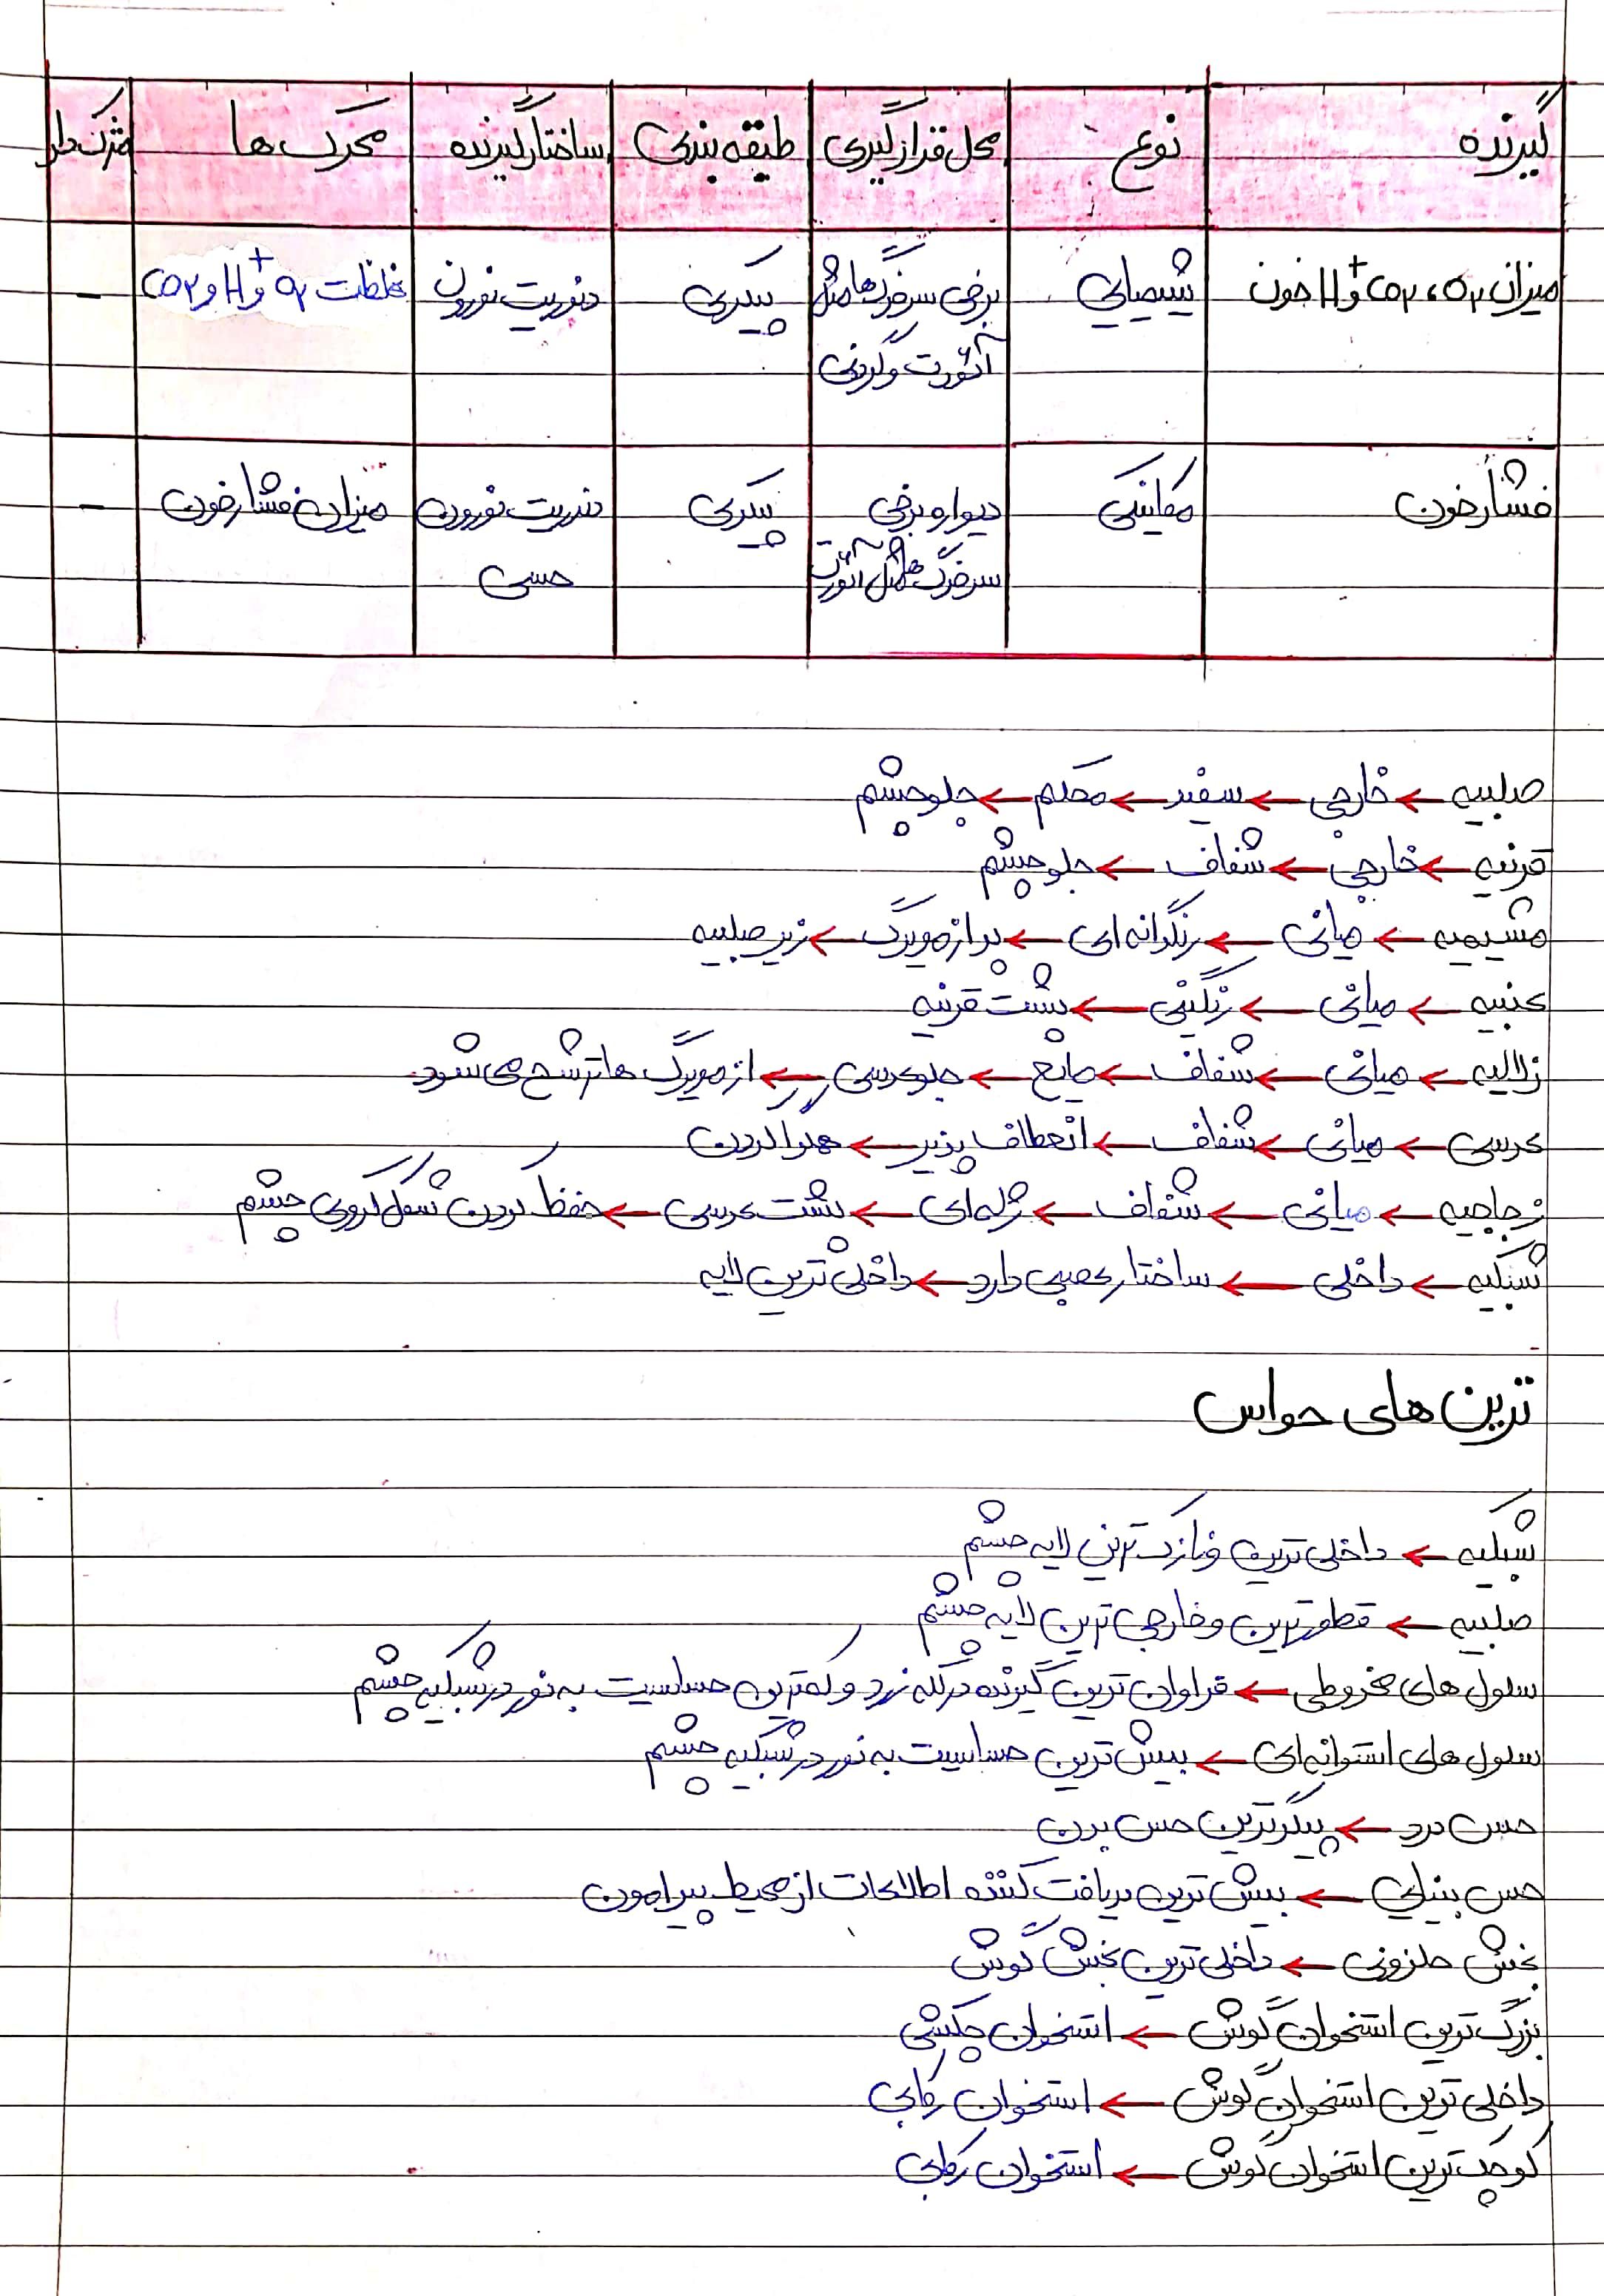 گیرنده نوع محل قرارگیری طبقه بندی ساختار گیرنده محرک ها مژک دار
میزان O۲، CO۲ و H+ خون شیمیایی برخی سرخرگ ها مثل پیکری دندریت نورون غلظت O۲ و H+ و CO۲ -
آئورت و گردنی
فشار خون مکانیکی دیواره برخی پیکری دندریت نورون میزان فشار خون -
سرخرگ ها مثل آئورت حسی
صلبیه ← خارجی ← سفید ← محکم ← جلو چشم
قرنیه ← خارجی ← شفاف ← جلو چشم
مشیمیه ← میانی ← رنگدانه ای ← پر از مویرگ ← زیر صلبیه
عنبیه ← میانی ← رنگینی ← پشت قرنیه
زلالیه ← میانی ← شفاف ← مایع ← جلو عدسی ← از مویرگ ها ترشح می شود.
عدسی ← میانی ← شفاف ← انعطاف پذیر ← همگرا کردن
زجاجیه ← میانی ← شفاف ← ژله ای ← پشت عدسی ← حفظ کردن شکل کروی چشم
شبکیه ← داخلی ← ساختار عصبی دارد ← داخلی ترین لایه
ترین های حواس
شبکیه ← داخلی ترین و نازک ترین لایه چشم
صلبیه ← قطورترین و خارجی ترین لایه چشم
سلول های مخروطی ← فراوان ترین گیرنده در لکه زرد و کمترین حساسیت به نور در شبکیه چشم
سلول های استوانه ای ← بیش ترین حساسیت به نور در شبکیه چشم
حس درد ← پیکرترین حس بدن
حس بینایی ← بیش ترین دریافت کننده اطلاعات از محیط پیرامون
بخش حلزونی ← داخلی ترین بخش گوش
بزرگ ترین استخوان گوش ← استخوان چکشی
داخلی ترین استخوان گوش ← استخوان رکابی
کوچک ترین استخوان گوش ← استخوان رکابی